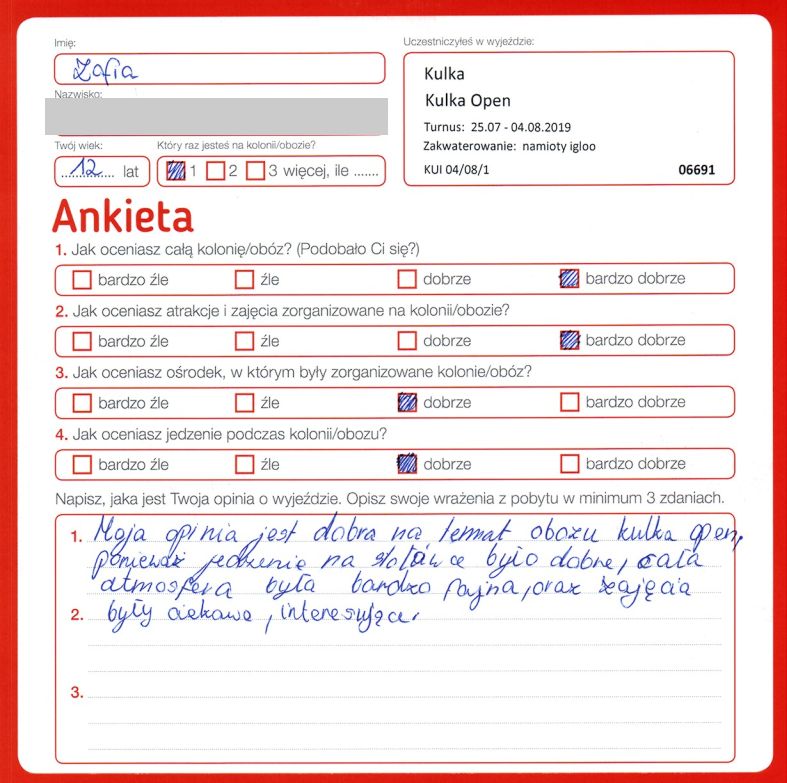 Imię:
Zofia
Nazwisko:
Twój wiek:
12 lat
Który raz jesteś na kolonii/obozie?
1 2 3 więcej, ile .......
Uczestniczyłeś w wyjeździe:
Kulka
Kulka Open
Turnus: 25.07 - 04.08.2019
Zakwaterowanie: namioty igloo
KUI 04/08/1 06691
Ankieta
1. Jak oceniasz całą kolonię/obóz? (Podobało Ci się?)
bardzo źle źle dobrze bardzo dobrze
2. Jak oceniasz atrakcje i zajęcia zorganizowane na kolonii/obozie?
bardzo źle źle dobrze bardzo dobrze
3. Jak oceniasz ośrodek, w którym były zorganizowane kolonie/obóz?
bardzo źle źle dobrze bardzo dobrze
4. Jak oceniasz jedzenie podczas kolonii/obozu?
bardzo źle źle dobrze bardzo dobrze
Napisz, jaka jest Twoja opinia o wyjeździe. Opisz swoje wrażenia z pobytu w minimum 3 zdaniach.
1. Moja opinia jest dobra na temat obozu kulka open,
ponieważ jedzenie na stołówce było dobre, cała
atmosfera była bardzo fajna, oraz zajęcia
2. były ciekawe, interesujące.
3.